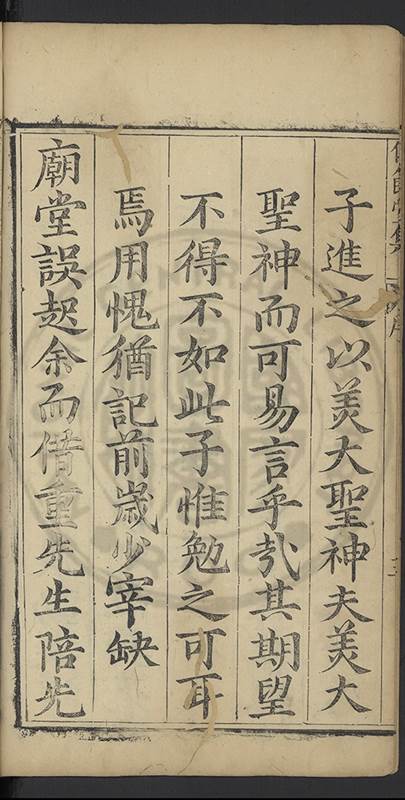 子進之以美大聖神夫美大
聖神而可易言乎哉其期望
不得不如此子惟勉之可耳
焉用愧猶記前歲少宰缺
廟堂誤起余而借重先生陪先